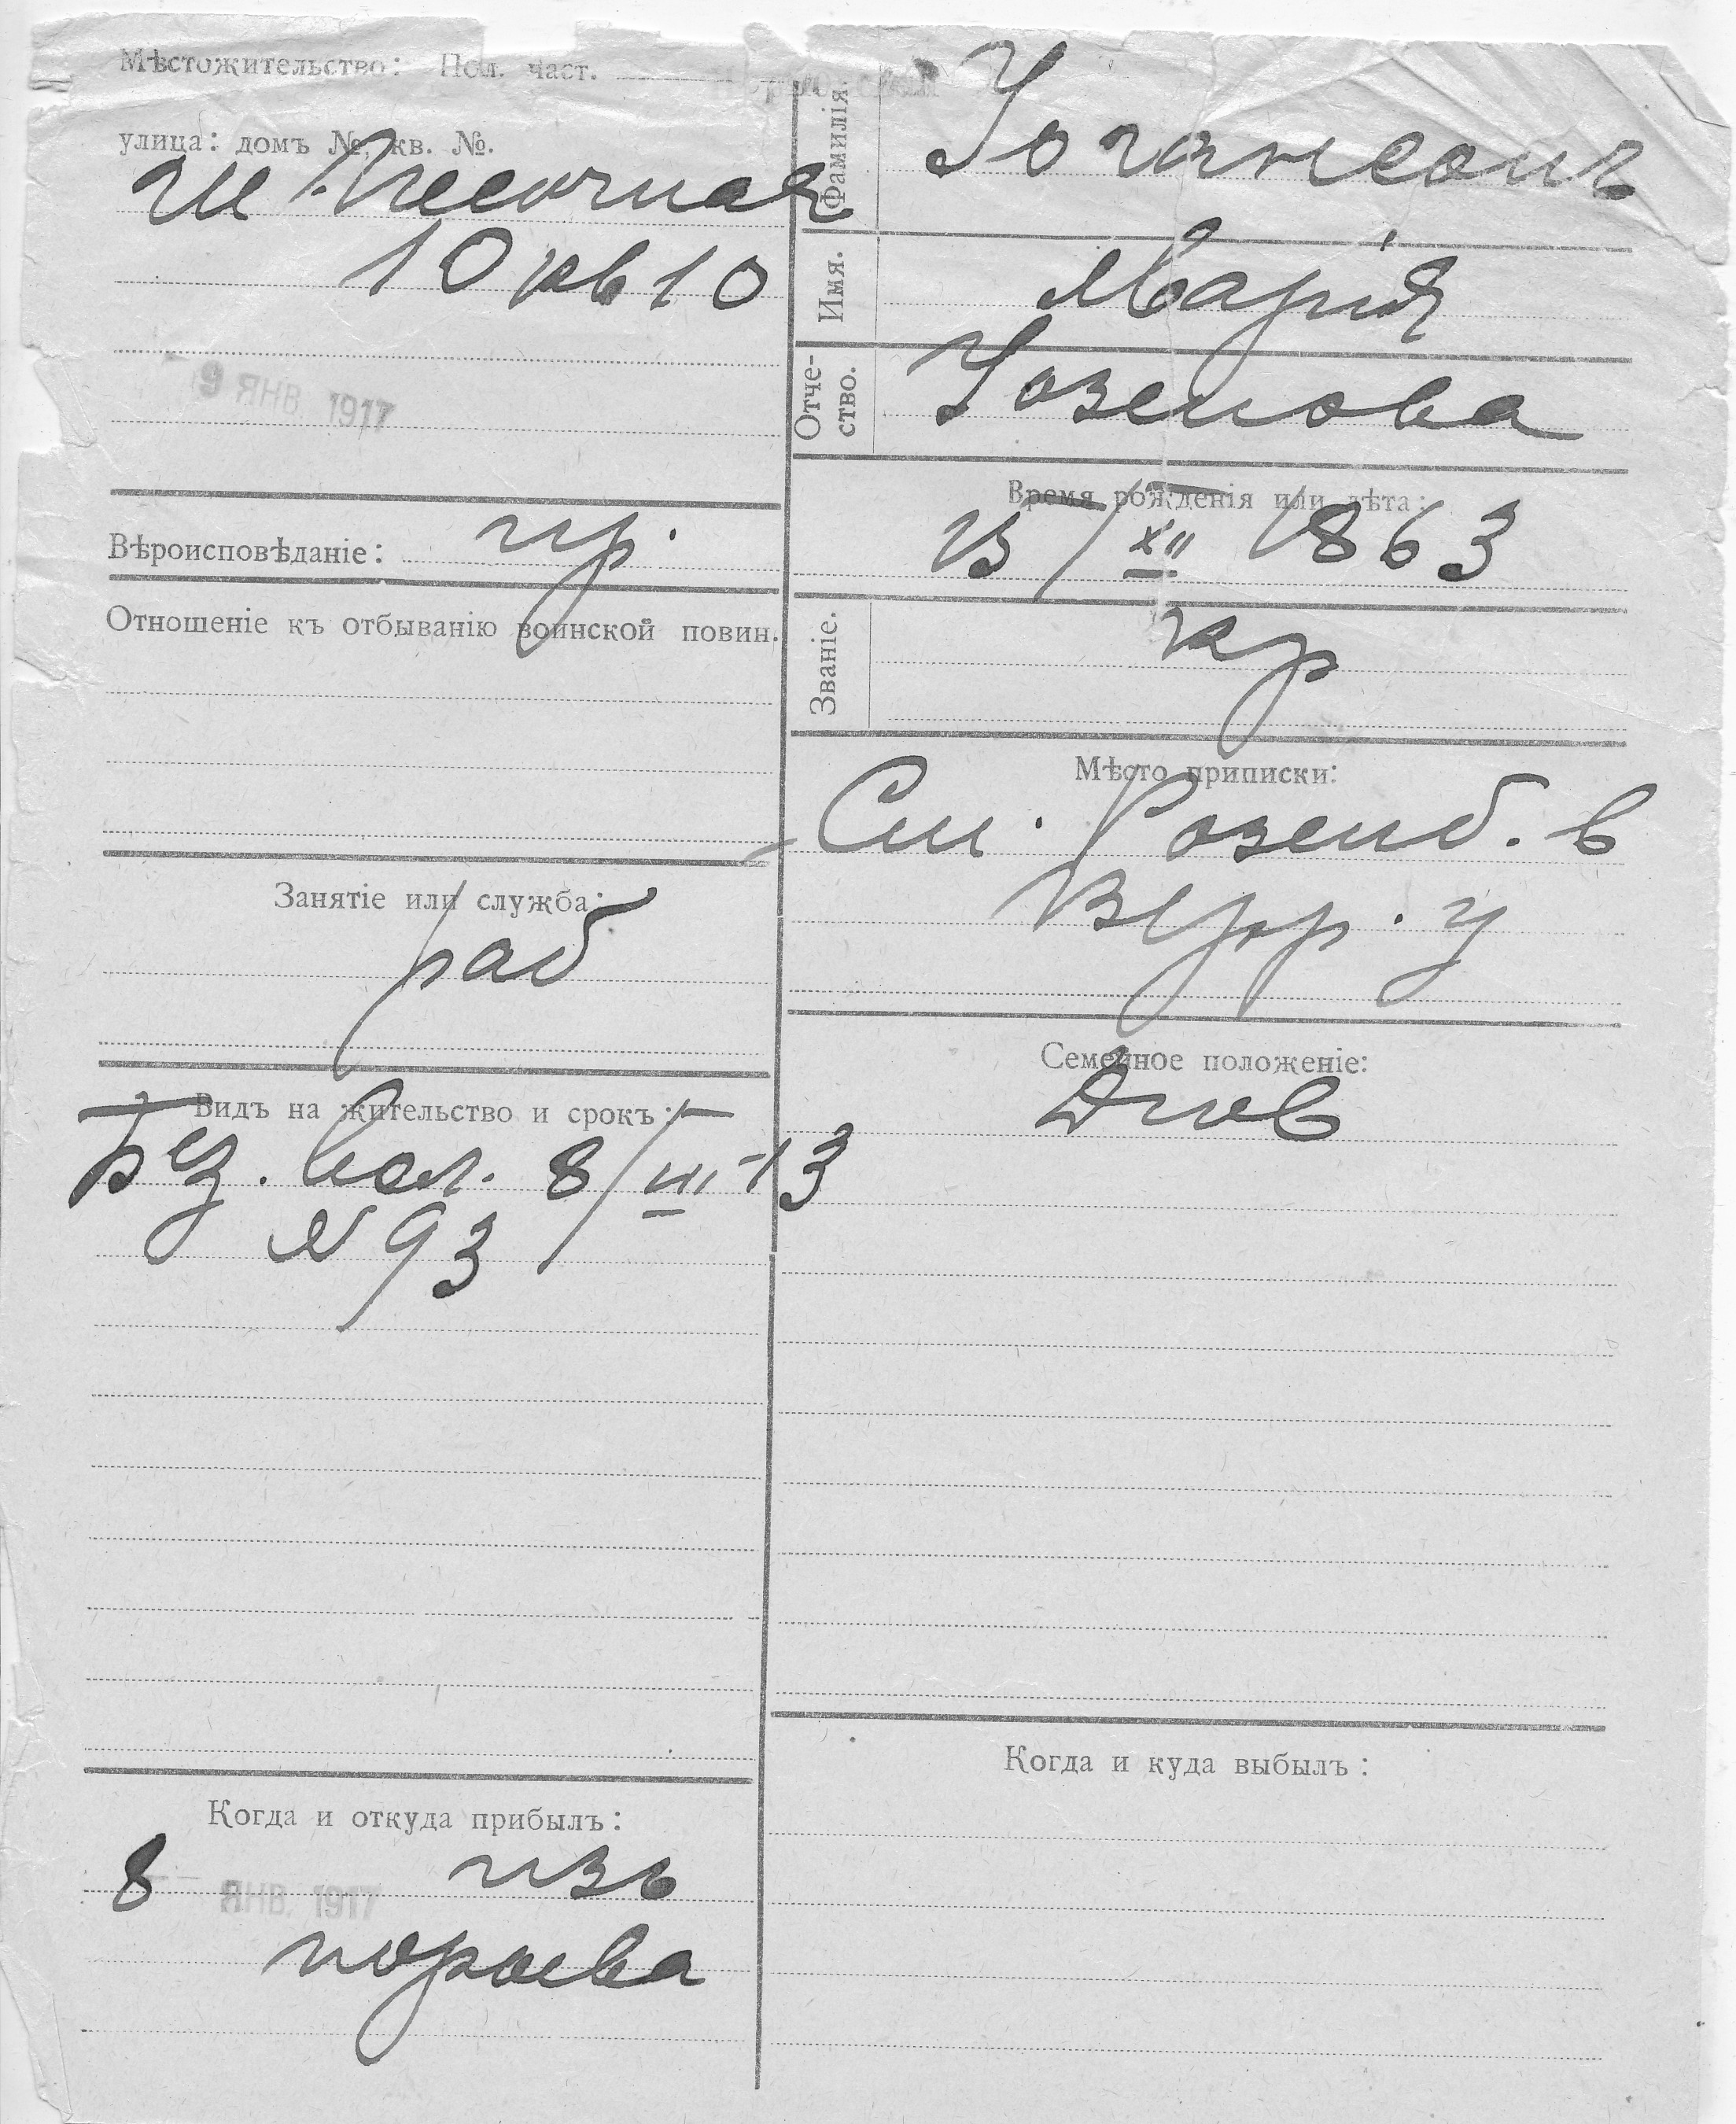 Мѣстожительство: Пол. част.
улица: домъ №, кв. №.
Песочная
10 кв 10
9 ЯНВ. 1917
Вѣроисповѣданіе: пр.
Отношеніе къ отбыванію воинской повин.
Занятіе или служба:
раб
Видъ на жительство и срокъ:
Без. Вол. 8/III-13
№ 93
Когда и откуда прибылъ:
8 ЯНВ. 1917 изъ
Фамилія.
Іогансонъ
Имя.
Марія
Отче-
ство.
Іозепова
Время рожденія или лѣта:
13/XII 1863
Званіе.
кр
Мѣсто приписки:
Розенб. в
Верр. у
Семейное положеніе:
Когда и куда выбылъ: